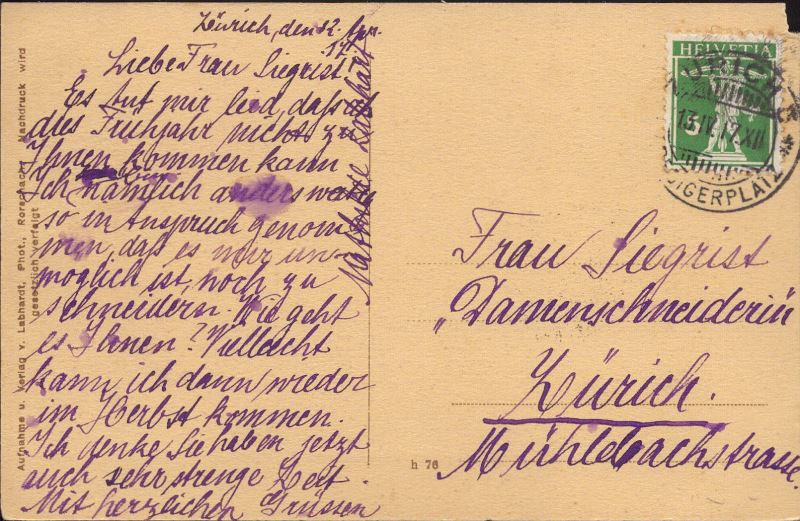 Zürich, den 12. Apr.
17.
Liebe Frau Siegrist!
Es tut mir leid, daß ich
dies Frühjahr nicht zu
Ihnen kommen kann
Ich bin
nämlich anderswärts
so in Anspruch genom
men, daß es mir un-
möglich ist, noch zu
schneidern. Wie geht
es Ihnen? Vielleicht
kann ich dann wieder
im Herbst kommen.
Ich denke Sie haben jetzt
auch sehr strenge Zeit.
Mit herzlichen Grüssen
Frau Siegrist
"Damenschneiderin
Zürich.
Mühlebachstrasse
HELVETIA
5
ZÜRICH
13.IV.17.XII
Aufnahme u. Verlag v. Labhardt, Phot., Rorschach. Nachdruck wird
gesetzlich verfolgt
h 76